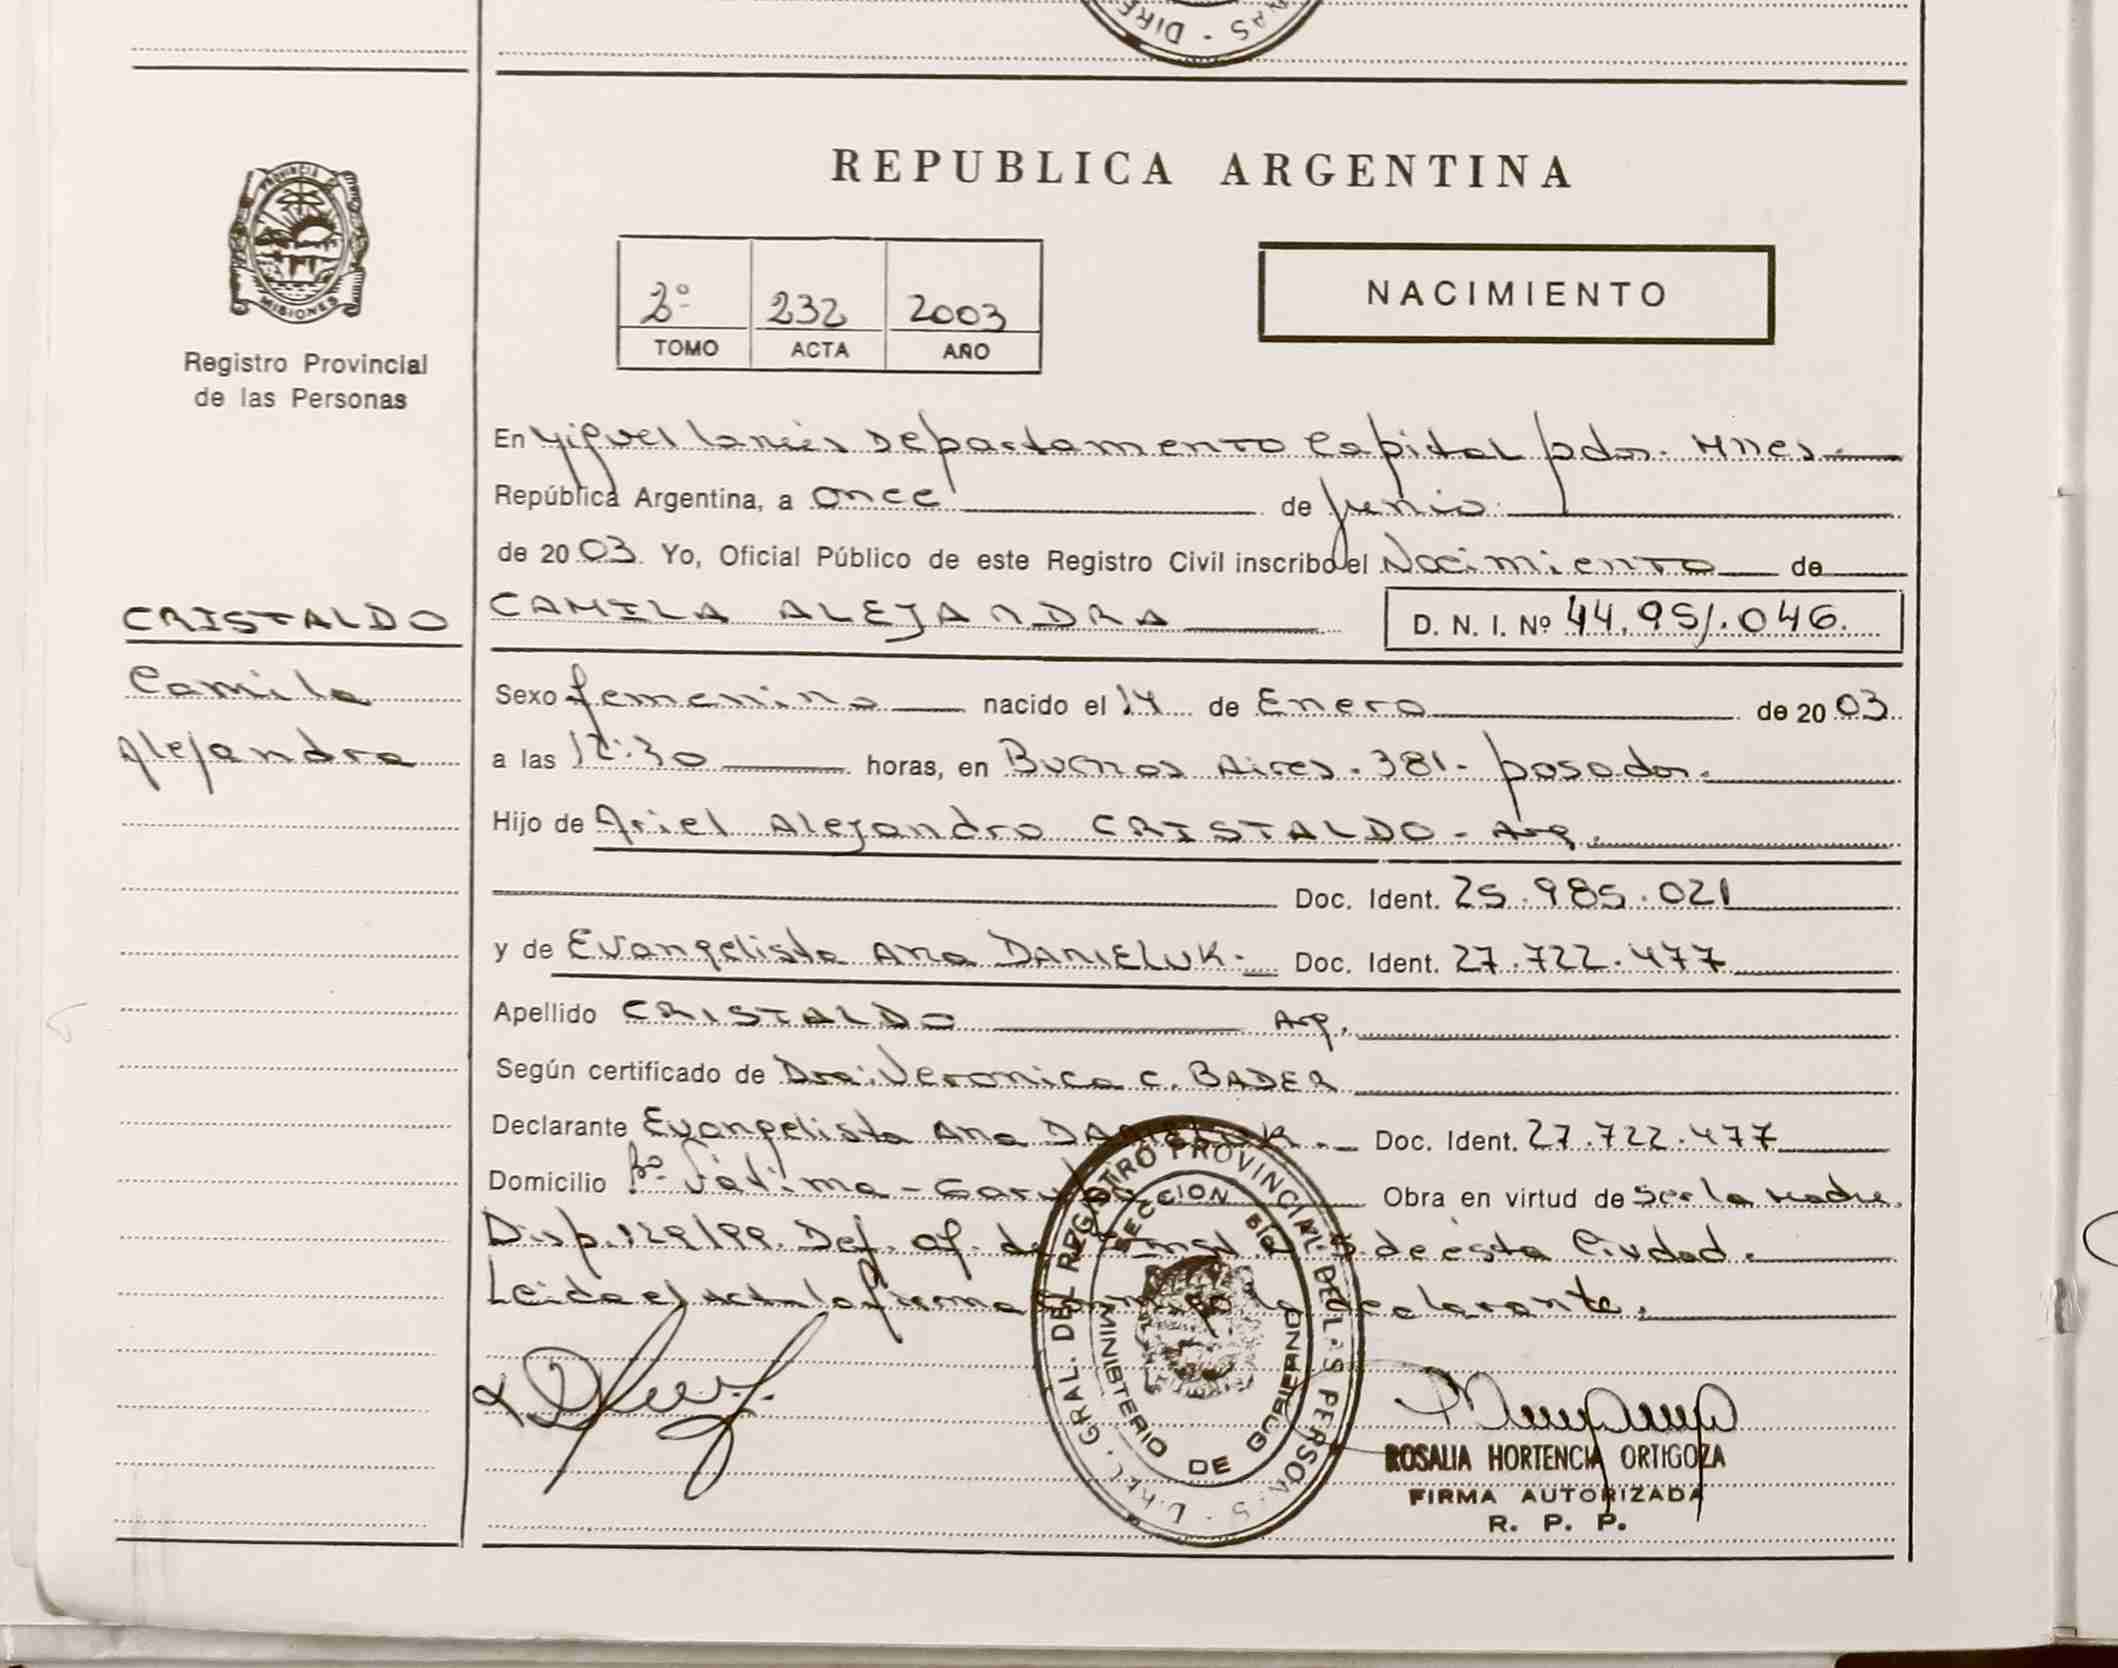 DIRE NAS
PROVINCIA
MISIONES
Registro Provincial
de las Personas
REPUBLICA ARGENTINA
2º 232 2003
TOMO ACTA AÑO
NACIMIENTO
En Miguel Lanús Departamento Capital pdas. Mnes.
República Argentina, a once de Junio.
de 2003. Yo, Oficial Público de este Registro Civil inscribo el Nacimiento de
CRISTALDO
Camila
Alejandra
CAMILA ALEJANDRA D. N. I. Nº 44.951.046.
Sexo femenino nacido el 14 de Enero de 2003.
a las 12:30 horas, en Buenos Aires. 381. posadas.
Hijo de Ariel Alejandro CRISTALDO - Arg.
Doc. Ident. 25.985.021
y de Evangelista Ana DANIELUK. Doc. Ident. 27.722.477
Apellido CRISTALDO Arg.
Según certificado de Dra: Veronica C. BADER
Declarante Evangelista Ana DANIELUK. Doc. Ident. 27.722.477
Domicilio Bº Fátima - Obra en virtud de ser la Madre.
Disp. 129/99. Def. of. de de ésta Ciudad.
Leida el acta la firma conmigo la declarante.
GRAL. DEL REGISTRO PROVINCIAL DE LAS PERSONAS
SECCION
MINISTERIO DE GOBIERNO
ROSALIA HORTENCIA ORTIGOZA
FIRMA AUTORIZADA
R. P. P.